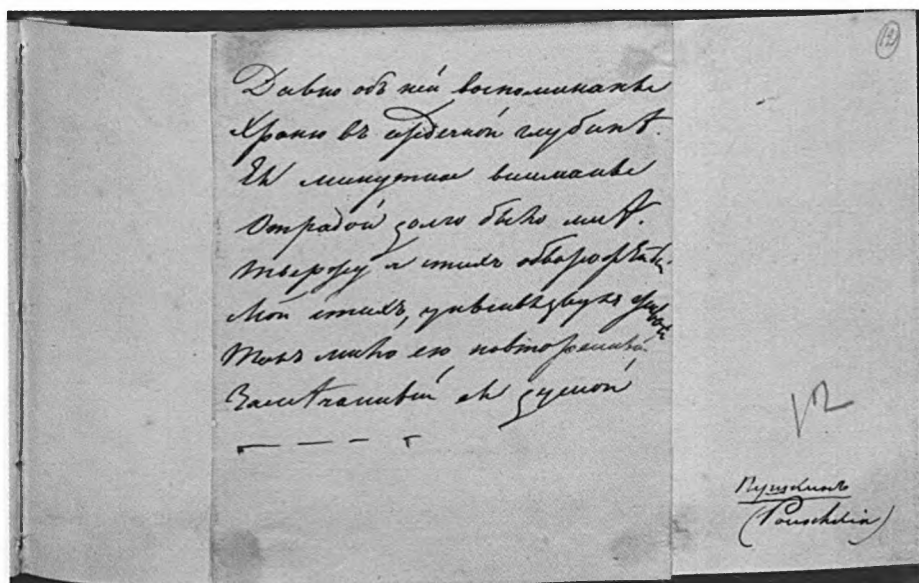 12
Давно объ ней воспоминанье
Храню въ сердечной глубинѣ.
Ея минутное вниманье
Отрадой долго было мнѣ.
Твержу я стихъ обвороженный.
Мой стихъ, унынья звукъ живой
Такъ мило ею повторенный
Замѣченный ея душой
Пушкинъ
(Pouschkin)